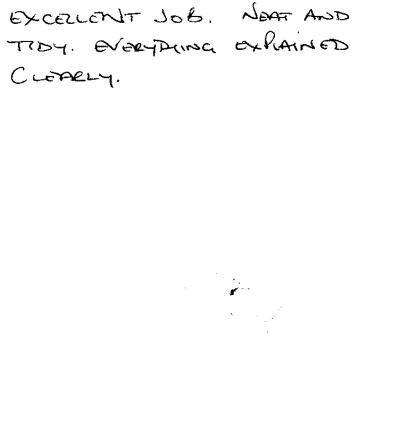 EXCELLENT JOB. NEAT AND
TIDY. EVERYTHING EXPLAINED
CLEARLY.